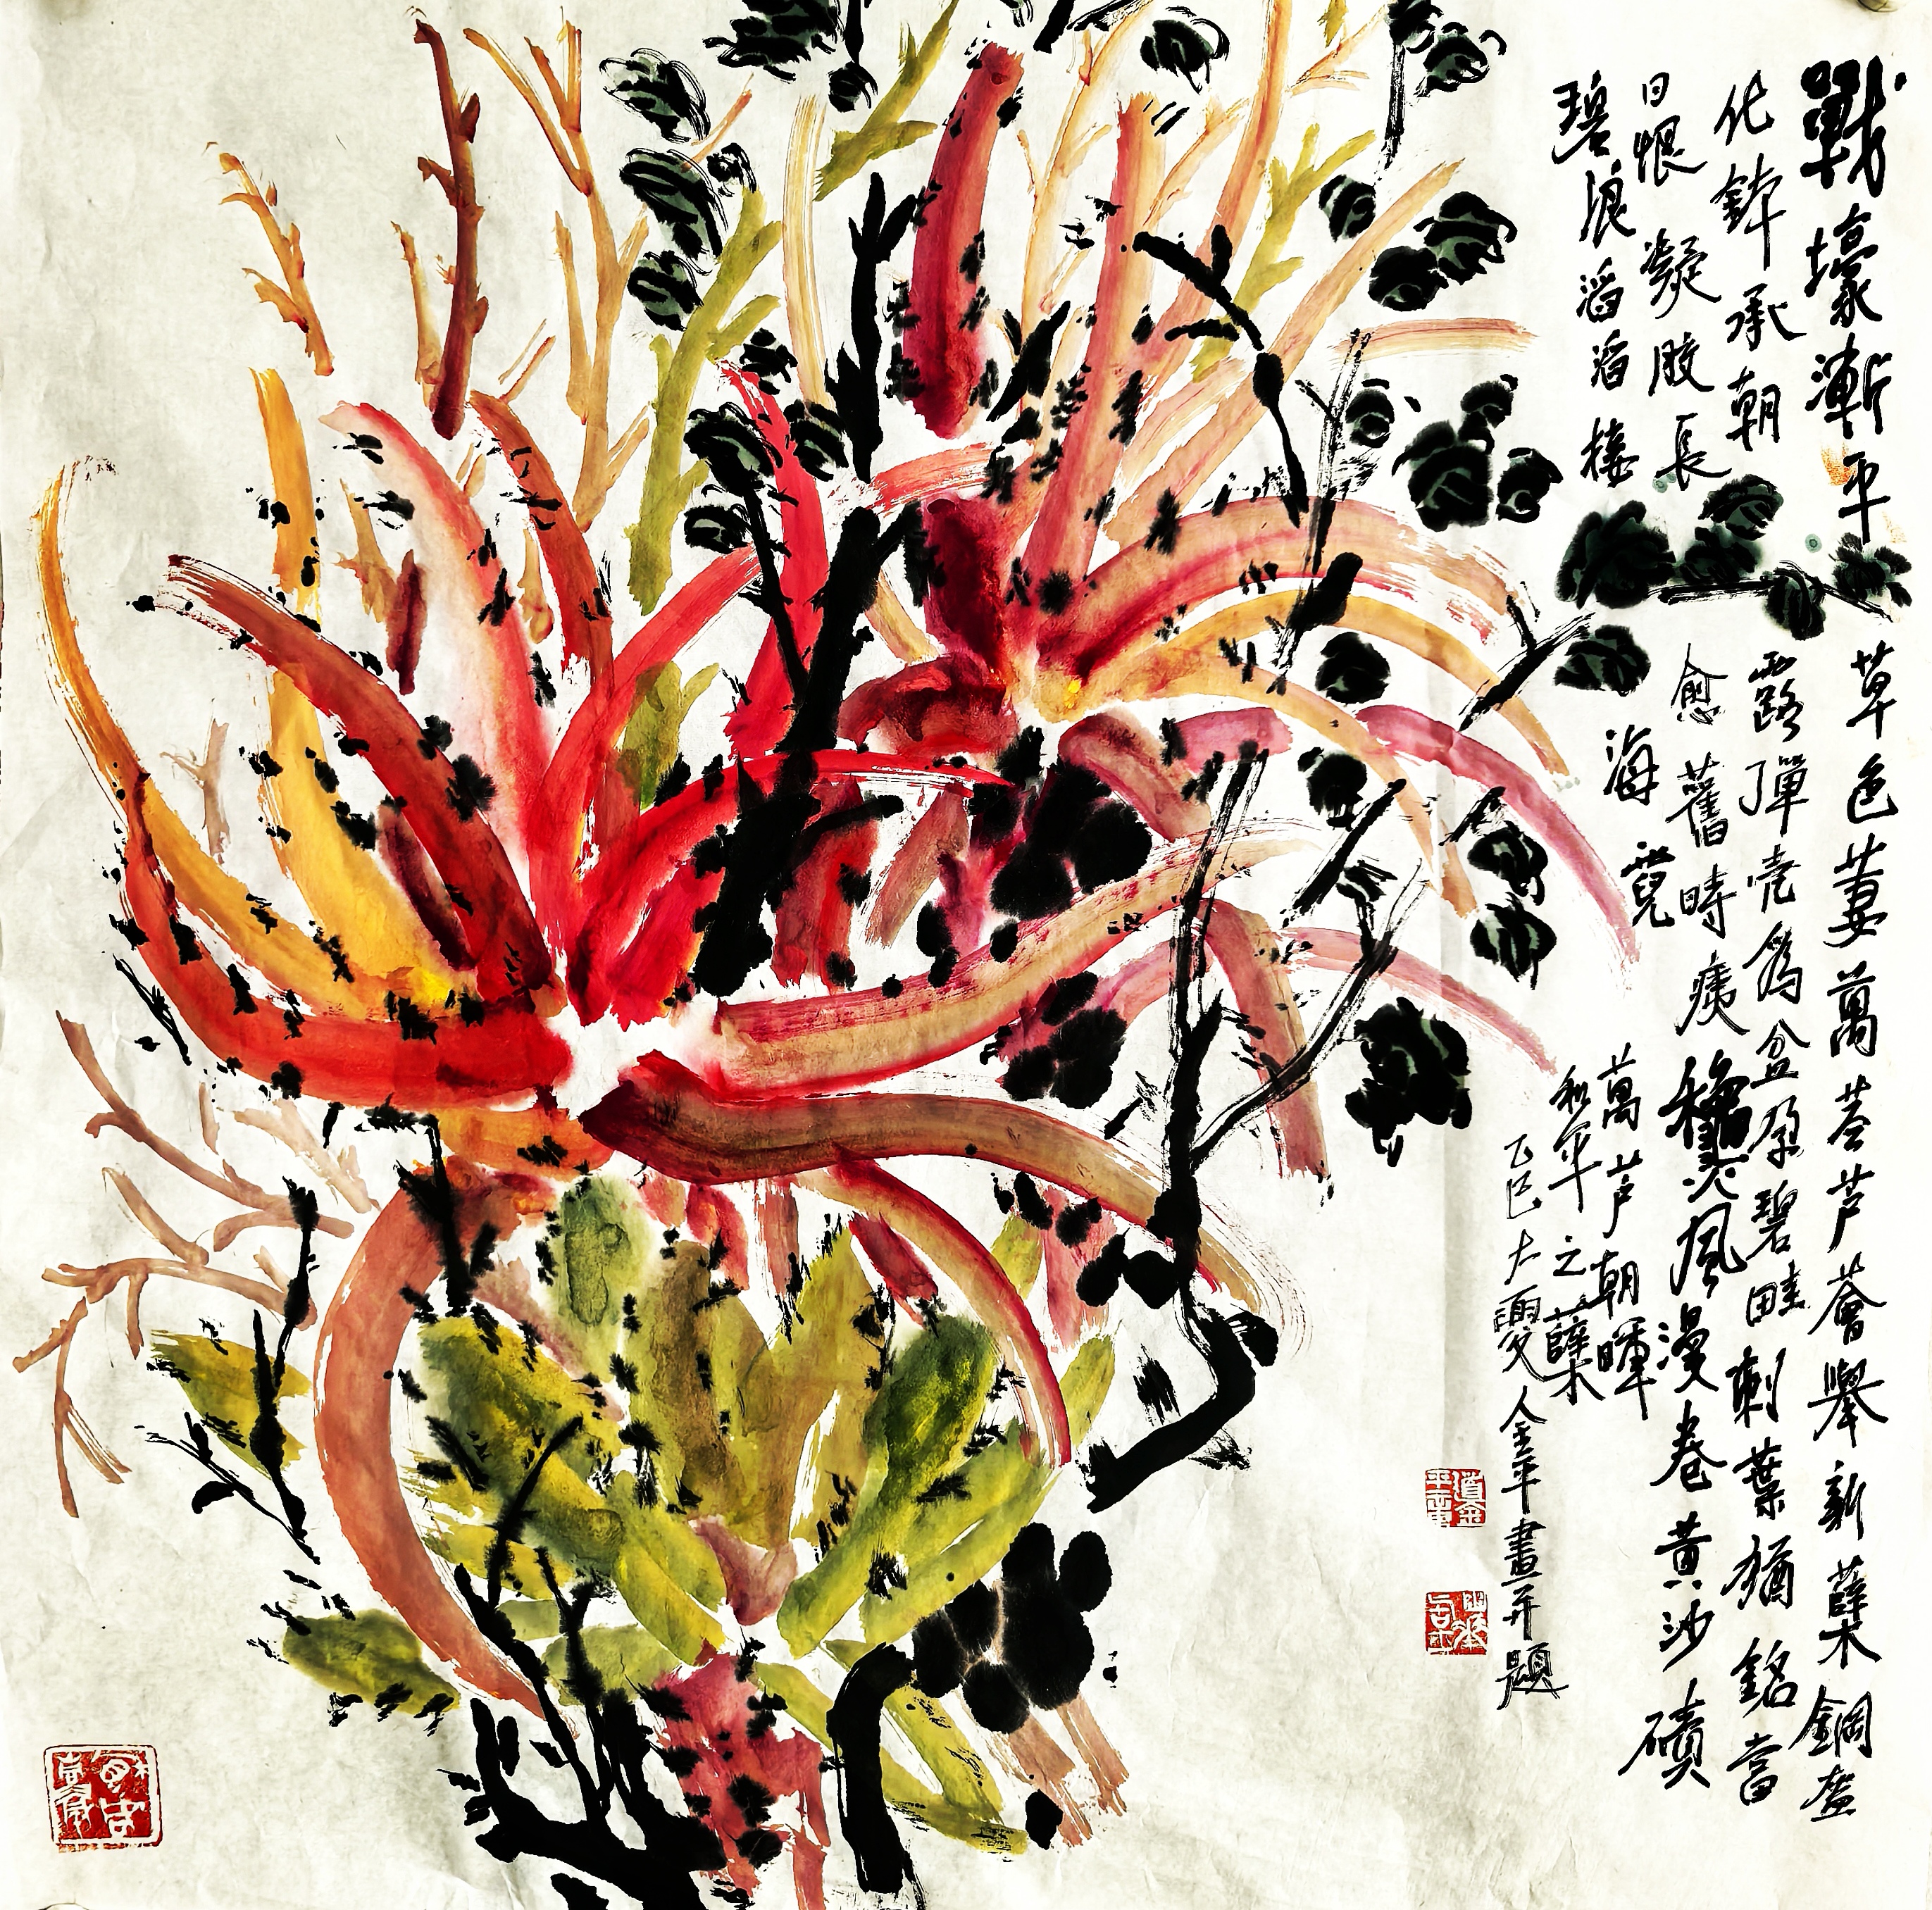 戰壕漸平草色萋萬荅芦薈舉新蘖鋼盔
化鉢承朝露彈壳爲盆孕碧畦刺葉猶銘當
日恨凝胶長愈舊時痍龝風漫卷黃沙磧
碧浪滔滔接海霓
萬芦朝暉
和平之蘖
乙巳大金平畫并題